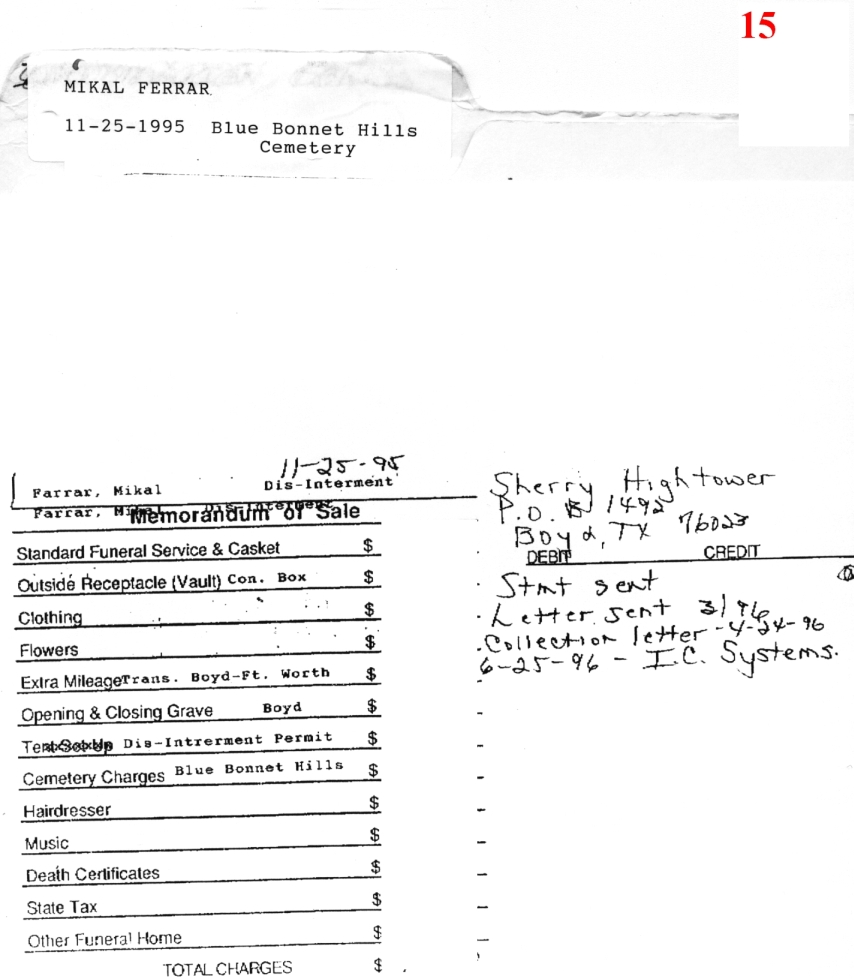 15
MIKAL FERRAR
11-25-1995 Blue Bonnet Hills
Cemetery
11-25-95
Farrar, Mikal Dis-Interment
Farrar, Mikal Dis-Interment
Memorandum of Sale
Standard Funeral Service & Casket $
Outside Receptacle (Vault) Con. Box $
Clothing $
Flowers $
Extra Mileage Trans. Boyd-Ft. Worth $
Opening & Closing Grave Boyd $
Tent Set Up Dis-Intrerment Permit $
Cemetery Charges Blue Bonnet Hills $
Hairdresser $
Music $
Death Certificates $
State Tax $
Other Funeral Home $
TOTAL CHARGES $
Sherry Hightower
P.O. B 1492
Boyd, TX 76023
DEBIT CREDIT
Stmt sent
Letter sent 3/96
Collection letter -4-24-96
6-25-96 - I.C. Systems.